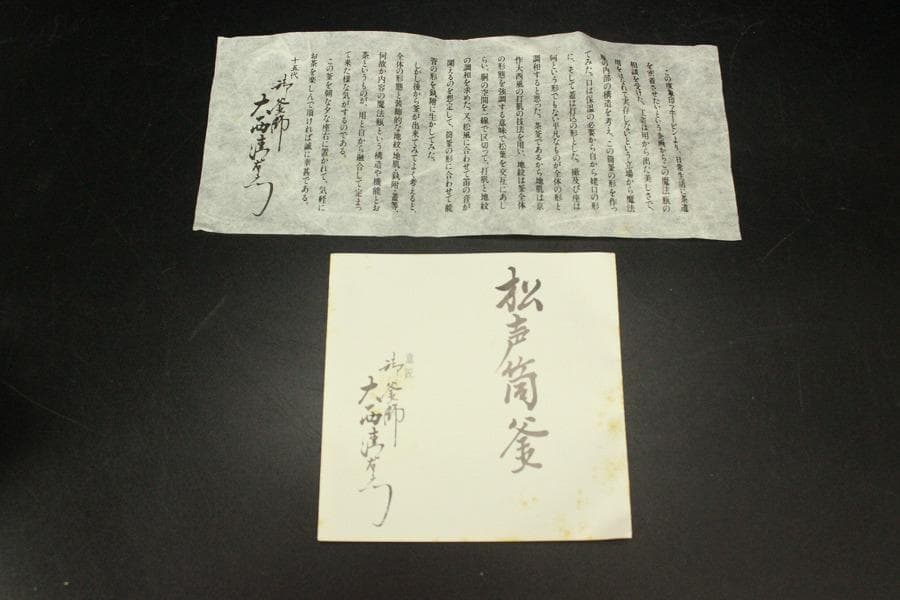 この度象印マホービンより、日常生活に茶道
を密着させたいという企画からこの魔法瓶の
相談を受けた。工芸は用から出た美しさで、
用を忘れて美存しないという立場から魔法
瓶の内部の構造を考え、この筒釜の形を作っ
てみた。口は保温の必要から自から姥口の形
に、そして蓋は打込の形とした。撮及び座は
何という形でもない平凡なものが全体の形と
調和すると思った。茶釜であるから地肌は京
作大西風の打肌の技法を用い、地紋は釜全体
の形態を強調する意味で松葉を交互にあし
らい、胴の空間を二線で区切って、打肌と地紋
の調和を求めた。又、松風に合わせて笛の音が
聞えるのを想定して、筒釜の形に合わせて能
管の形を鐶附に生かしてみた。
しかし後から釜が出来てみてよく考えると、
全体の形態と装飾的な地紋・地肌・鐶附・蓋等、
何故か内容の魔法瓶という構造や機能とお
茶というものが、用と自から融合して定まっ
て来た様な気がするのである。
この釜を朝な夕な座右に置かれて、気軽に
お茶を楽しんで頂ければ誠に幸甚である。
十五代
御釜師
大西清右衛門
松声筒釜
意匠
御釜師
大西清右衛門